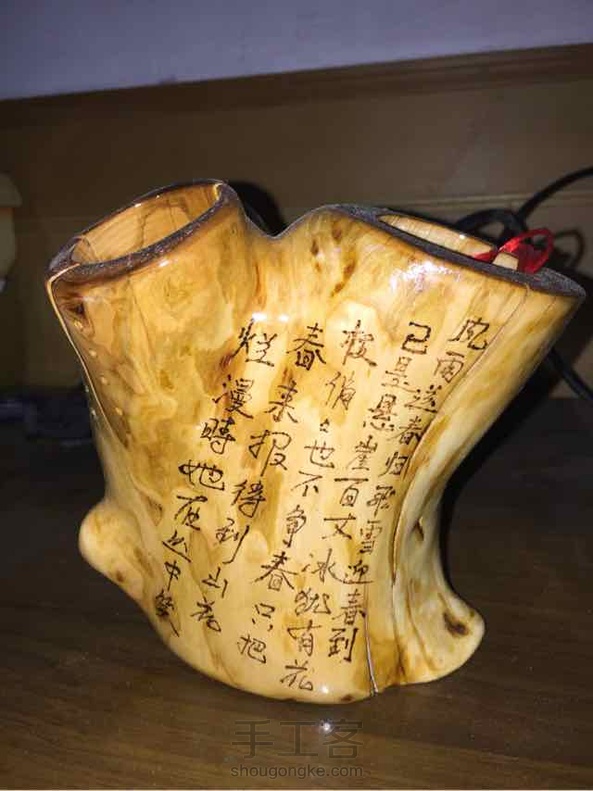 风雨送春归飞雪迎春到
已是悬崖百丈冰犹有花
枝俏々也不争春只把
春来报待到山花
烂漫時她在丛中笑
手工客
shougongke.com